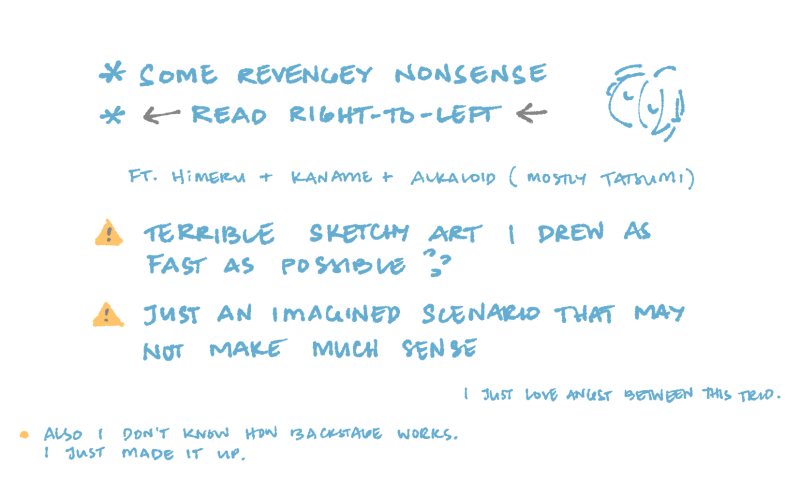 * SOME REVENGEY NONSENSE
* ← READ RIGHT-TO-LEFT ←
FT. HiMERU + KANAME + ALKALOID (MOSTLY TATSUMI)
! TERRIBLE SKETCHY ART I DREW AS
FAST AS POSSIBLE ??
! JUST AN IMAGINED SCENARIO THAT MAY
NOT MAKE MUCH SENSE
I JUST LOVE ANGST BETWEEN THIS TRIO.
• ALSO I DON'T KNOW HOW BACKSTAGE WORKS.
I JUST MADE IT UP.